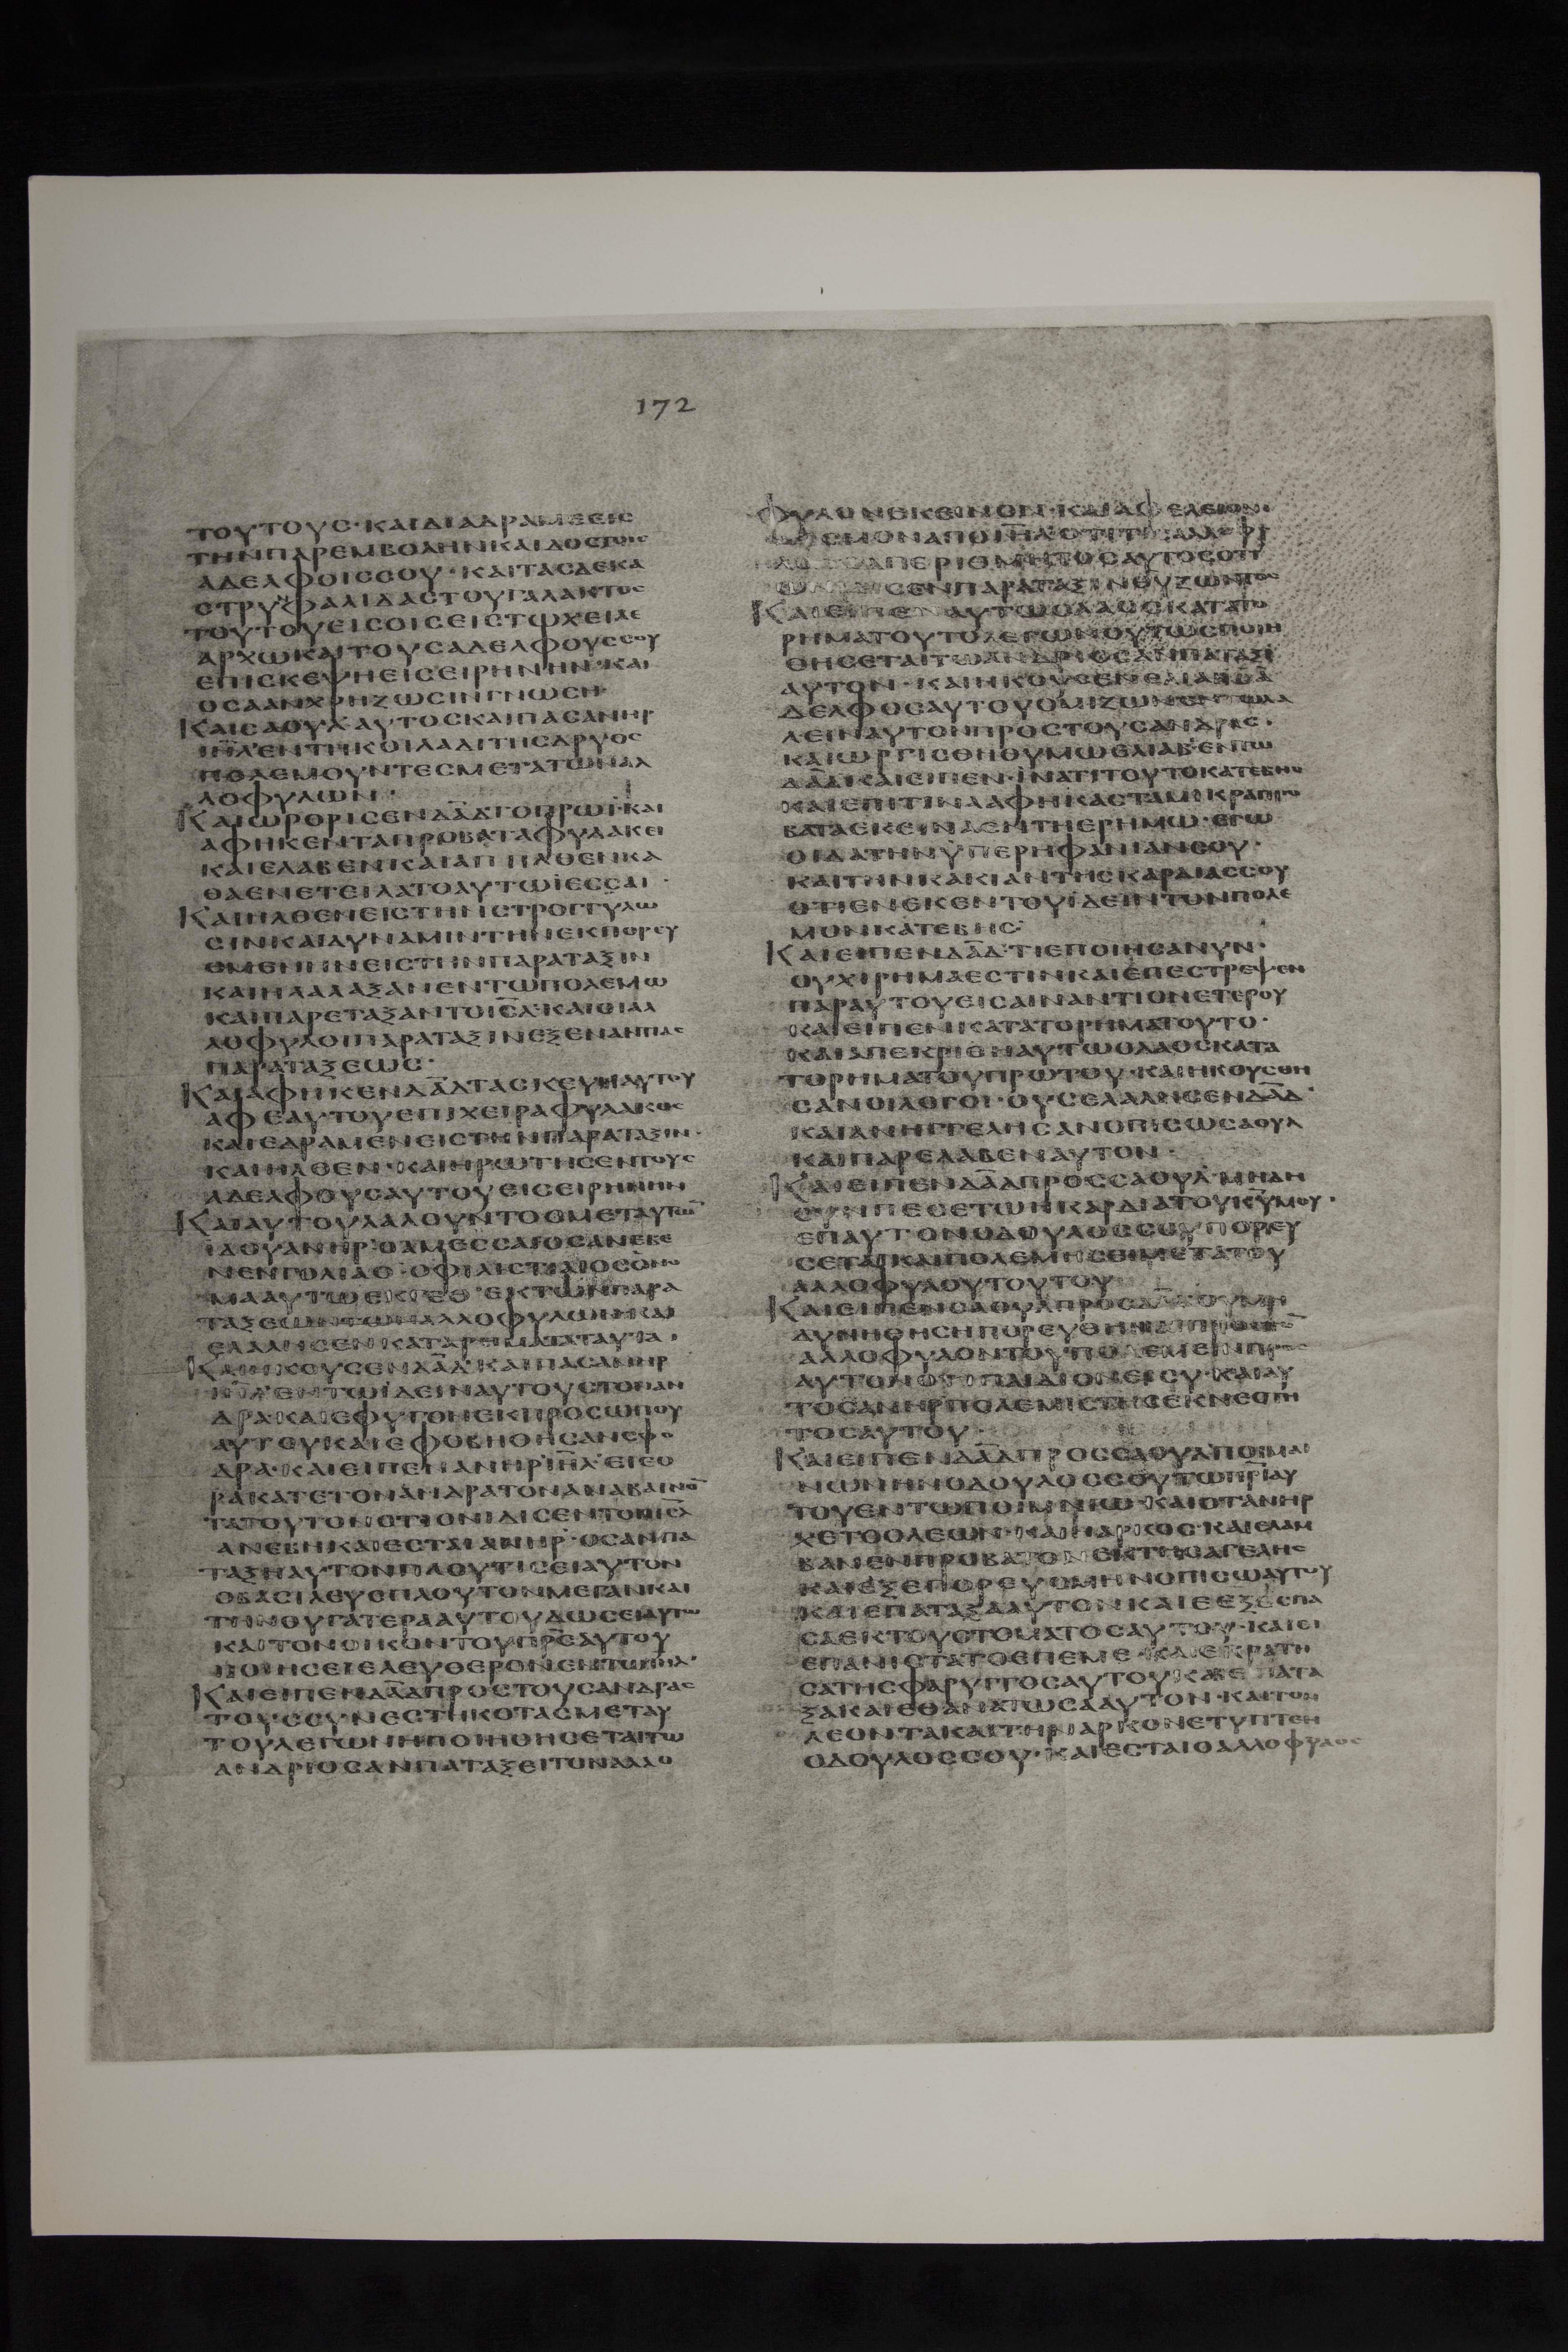 172
ΤΟΥΤΟΥС·ΚΑΙΔΙΑΔΡΑΜΕΕΙС
ΤΗΝΠΑΡΕΜΒΟΛΗΝΚΑΙΔΟСΤΟΙС
ΑΔΕΛΦΟΙССΟΥ·ΚΑΙΤΑСΔΕΚΑ
СΤΡΥΦΑΛΙΔΑСΤΟΥΓΑΛΑΚΤΟС
ΤΟΥΤΟΥΕΙСΟΙСΕΙСΤΩΧΕΙΛΙ
ΑΡΧΩΚΑΙΤΟΥСΑΔΕΛΦΟΥССΟΥ
ΕΠΙСΚΕΨΗΕΙСΕΙΡΗΝΗΝ·ΚΑΙ
ΟСΑΑΝΧΡΗΖΩСΙΝΓΝΩСΗ·
ΚΑΙСΑΟΥΛΑΥΤΟСΚΑΙΠΑСΑΝΗΡ
ΙΗ̅Λ̅ΕΝΤΗΚΟΙΛΑΔΙΤΗСΔΡΥΟС
ΠΟΛΕΜΟΥΝΤΕСΜΕΤΑΤΩΝΑΛ
ΛΟΦΥΛΩΝ·
ΚΑΙΩΡΘΡΙСΕΝΔΑ̅Δ̅ΤΟΠΡΩΙ·ΚΑΙ
ΑΦΗΚΕΝΤΑΠΡΟΒΑΤΑΦΥΛΑΚΕΙ
ΚΑΙΕΛΑΒΕΝΚΑΙΑΠΗΛΘΕΝΚΑ
ΘΑΕΝΕΤΕΙΛΑΤΟΑΥΤΩΙΕССΑΙ·
ΚΑΙΗΛΘΕΝΕΙСΤΗΝСΤΡΟΓΓΥΛΩ
СΙΝΚΑΙΔΥΝΑΜΙΝΤΗΝΕΚΠΟΡΕΥ
ΟΜΕΝΗΝΕΙСΤΗΝΠΑΡΑΤΑΞΙΝ
ΚΑΙΗΛΑΛΑΞΑΝΕΝΤΩΠΟΛΕΜΩ
ΚΑΙΠΑΡΕΤΑΞΑΝΤΟΙΗ̅Λ̅·ΚΑΙΟΙΑΛ
ΛΟΦΥΛΟΙΠΑΡΑΤΑΞΙΝΕΞΕΝΑΝΤΙΑС
ΠΑΡΑΤΑΞΕΩС·
ΚΑΙΑΦΗΚΕΝΔΑ̅Δ̅ΤΑСΚΕΥΗΑΥΤΟΥ
ΑΦΕΑΥΤΟΥΕΠΙΧΕΙΡΑΦΥΛΑΚΟС
ΚΑΙΕΔΡΑΜΕΝΕΙСΤΗΝΠΑΡΑΤΑΞΙΝ·
ΚΑΙΗΛΘΕΝ·ΚΑΙΗΡΩΤΗСΕΝΤΟΥС
ΑΔΕΛΦΟΥСΑΥΤΟΥΕΙСΕΙΡΗΝΗΝ
ΚΑΙΑΥΤΟΥΛΑΛΟΥΝΤΟСΜΕΤΑΥΤΩ̅
ΙΔΟΥΑΝΗΡΟΑΜΕССΑΙΟСΑΝΕΒΕ
ΝΕΝΓΟΛΙΑΘ·ΟΦΙΛΙСΤΙΑΙΟСΟΝΟ
ΜΑΑΥΤΩΕΚΓΕΘ·ΕΚΤΩΝΠΑΡΑ
ΤΑΞΕΩΝΤΩΝΑΛΛΟΦΥΛΩΝ·ΚΑΙ
ΕΛΑΛΗСΕΝΚΑΤΑΡΗΜΑΤΑΤΑΥΤΑ·
ΚΑΙΗΚΟΥСΕΝΔΑ̅Δ̅·ΚΑΙΠΑСΑΝΗΡ
ΙΗ̅Λ̅ΕΝΤΩΙΔΕΙΝΑΥΤΟΥСΤΟΝΑΝ
ΔΡΑ·ΚΑΙΕΦΥΓΟΝΕΚΠΡΟСΩΠΟΥ
ΑΥΤΟΥΚΑΙΕΦΟΒΗΘΗСΑΝСΦΟ
ΔΡΑ·ΚΑΙΕΙΠΕΝΑΝΗΡΙΗ̅Λ̅·ΕΙΕΟ
ΡΑΚΑΤΕΤΟΝΑΝΔΡΑΤΟΝΑΝΑΒΑΙΝΟ̅
ΤΑΤΟΥΤΟΝΟΤΙΟΝΙΔΙСΕΝΤΟΝΙΗ̅Λ̅
ΑΝΕΒΗΚΑΙΕСΤΑΙΑΝΗΡ·ΟСΑΝΠΑ
ΤΑΞΗΑΥΤΟΝΠΛΟΥΤΙСΕΙΑΥΤΟΝ
ΟΒΑСΙΛΕΥСΠΛΟΥΤΟΝΜΕΓΑΝΚΑΙ
ΤΗΝΘΥΓΑΤΕΡΑΑΥΤΟΥΔΩСΕΙΑΥΤΩ
ΚΑΙΤΟΝΟΙΚΟΝΤΟΥΠΡ̅С̅ΑΥΤΟΥ
ΠΟΙΗСΕΙΕΛΕΥΘΕΡΟΝΕΝΤΩΙΗ̅Λ̅·
ΚΑΙΕΙΠΕΝΔΑ̅Δ̅ΠΡΟСΤΟΥСΑΝΔΡΑС
ΤΟΥССΥΝΕСΤΗΚΟΤΑСΜΕΤΑΥ
ΤΟΥΛΕΓΩΝΗΠΟΙΗΘΗСΕΤΑΙΤΩ
ΑΝΔΡΙΟСΑΝΠΑΤΑΞΕΙΤΟΝΑΛΛΟ
ΦΥΛΟΝΕΚΕΙΝΟΝ·ΚΑΙΑΦΕΛΕΙΟΝΙ
ΔΙСΜΟΝΑΠΟΙΗ̅Λ̅ΟΤΙΤΙСΑΛΛΟΦΥ
ΛΟСΟΑΠΕΡΙΤΜΗΤΟСΑΥΤΟСΟΤΙ
СΕΝΠΑΡΑΤΑΞΙΝΘΥΖΩΝΤΟС
ΚΑΙΕΙΠΕΝΑΥΤΩΟΛΑΟСΚΑΤΑΤΟ
ΡΗΜΑΤΟΥΤΟΛΕΓΩΝΟΥΤΩСΠΟΙΗ
ΘΗСΕΤΑΙΤΩΑΝΔΡΙΟСΑΝΠΑΤΑΞΙ
ΑΥΤΟΝ·ΚΑΙΗΚΟΥСΕΝΕΛΙΑΒΟΑ
ΔΕΛΦΟСΑΥΤΟΥΟΜΙΖΩΝΕΝΤΩΛΑ
ΛΕΙΝΑΥΤΟΝΠΡΟСΤΟΥСΑΝΔΡΑС·
ΚΑΙΩΡΓΙСΘΗΘΥΜΩΕΛΙΑΒΕΝΤΩ
ΔΑ̅Δ̅ΚΑΙΕΙΠΕΝ·ΙΝΑΤΙΤΟΥΤΟΚΑΤΕΒΗС
ΚΑΙΕΠΙΤΙΝΑΑΦΗΚΑСΤΑΜΙΚΡΑΠΡΟ
ΒΑΤΑΕΚΕΙΝΑΕΝΤΗΕΡΗΜΩ·ΕΓΩ
ΟΙΔΑΤΗΝΥΠΕΡΗΦΑΝΙΑΝСΟΥ·
ΚΑΙΤΗΝΚΑΚΙΑΝΤΗСΚΑΡΔΙΑССΟΥ
ΟΤΙΕΝΕΚΕΝΤΟΥΙΔΕΙΝΤΟΝΠΟΛΕ
ΜΟΝΚΑΤΕΒΗС·
ΚΑΙΕΙΠΕΝΔΑ̅Δ̅·ΤΙΕΠΟΙΗСΑΝΥΝ·
ΟΥΧΙΡΗΜΑΕСΤΙΝΚΑΙΕΠΕСΤΡΕΨΕΝ
ΠΑΡΑΥΤΟΥΕΙСΑΙΝΑΝΤΙΟΝΕΤΕΡΟΥ
ΚΑΙΕΙΠΕΝΚΑΤΑΤΟΡΗΜΑΤΟΥΤΟ·
ΚΑΙΑΠΕΚΡΙΘΗΑΥΤΩΟΛΑΟСΚΑΤΑ
ΤΟΡΗΜΑΤΟΥΠΡΩΤΟΥ·ΚΑΙΗΚΟΥСΘΗ
СΑΝΟΙΛΟΓΟΙ·ΟΥСΕΛΑΛΗСΕΝΔΑ̅Δ̅·
ΚΑΙΑΝΗΓΓΕΛΗСΑΝΟΠΙСΩСΑΟΥΛ
ΚΑΙΠΑΡΕΛΑΒΕΝΑΥΤΟΝ·
ΚΑΙΕΙΠΕΝΔΑ̅Δ̅ΠΡΟССΑΟΥΛ·ΜΗΔΗ
СΥΝΠΕСΕΤΩΗΚΑΡΔΙΑΤΟΥΚ̅Υ̅ΜΟΥ·
ΕΠΑΥΤΟΝΟΔΟΥΛΟССΟΥΠΟΡΕΥ
СΕΤΑΙΚΑΙΠΟΛΕΜΗСΕΙΜΕΤΑΤΟΥ
ΑΛΛΟΦΥΛΟΥΤΟΥΤΟΥ
ΚΑΙΕΙΠΕΝСΑΟΥΛΠΡΟСΔΑ̅Δ̅ΟΥΜΗ
ΔΥΝΗΘΗСΗΠΟΡΕΥΘΗΝΑΙΠΡΟСΤΟ̅
ΑΛΛΟΦΥΛΟΝΤΟΥΠΟΛΕΜΕΙΝΠΡΟС
ΑΥΤΟΝΟΤΙΠΑΙΔΙΟΝΕΙСΥ·ΚΑΙΑΥ
ΤΟСΑΝΗΡΠΟΛΕΜΙСΤΗСΕΚΝΕΟΤΗ
ΤΟСΑΥΤΟΥ
ΚΑΙΕΙΠΕΝΔΑ̅Δ̅ΠΡΟССΑΟΥΛΠΟΙΜΑΙ
ΝΩΝΗΝΟΔΟΥΛΟССΟΥΤΩΠΡ̅Ι̅ΑΥ
ΤΟΥΕΝΤΩΠΟΙΜΝΙΩ·ΚΑΙΟΤΑΝΗΡ
ΧΕΤΟΟΛΕΩΝ·ΚΑΙΗΑΡΚΟС·ΚΑΙΕΛΑΜ
ΒΑΝΕΝΠΡΟΒΑΤΟΝΕΚΤΗСΑΓΕΛΗС
ΚΑΙΕΞΕΠΟΡΕΥΟΜΗΝΟΠΙСΩΑΥΤΟΥ
ΚΑΙΕΠΑΤΑΞΑΑΥΤΟΝΚΑΙΕΞΕСΠΑ
СΑΕΚΤΟΥСΤΟΜΑΤΟСΑΥΤΟΥ·ΚΑΙΕΙ
ΕΠΑΝΙСΤΑΤΟΕΠΕΜΕ·ΚΑΙΕΚΡΑΤΗ
СΑΤΗСΦΑΡΥΓΓΟСΑΥΤΟΥΚΑΙΕΠΑΤΑ
ΞΑΚΑΙΕΘΑΝΑΤΩСΑΑΥΤΟΝ·ΚΑΙΤΟΝ
ΛΕΟΝΤΑΚΑΙΤΗΝΑΡΚΟΝΕΤΥΠΤΕΝ
ΟΔΟΥΛΟССΟΥ·ΚΑΙΕСΤΑΙΟΑΛΛΟΦΥΛΟС